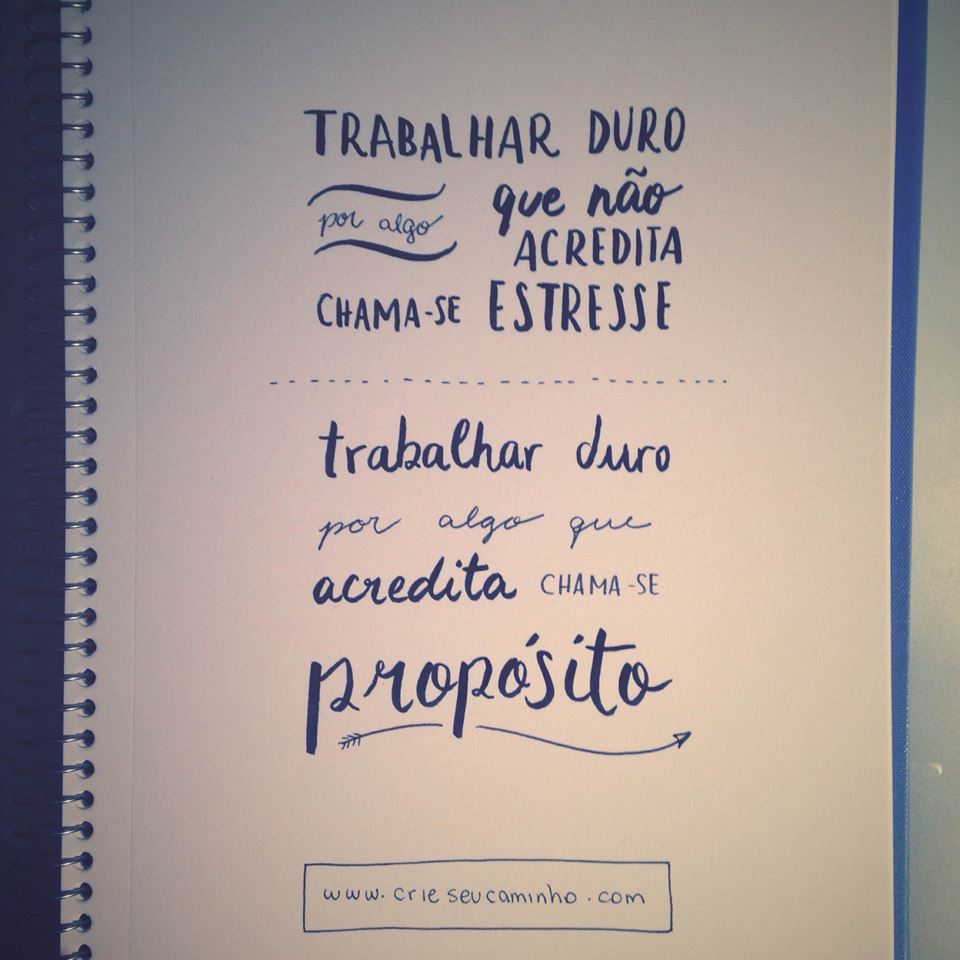 TRABALHAR DURO
por algo que não
ACREDITA
CHAMA-SE ESTRESSE
trabalhar duro
por algo que
acredita CHAMA-SE
propósito
www.crieseucaminho.com